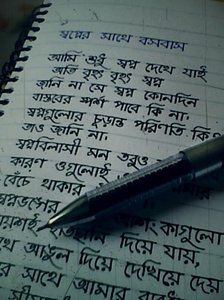 স্বপ্নের সাথে বসবাস
আমি শুধু স্বপ্ন দেখে যাই
অতি বৃহৎ বৃহৎ স্বপ্ন
জানি না সে স্বপ্ন কোনদিন
বাস্তবের স্পর্শ পাবে কি না,
স্বপ্নগুলোর চূড়ান্ত পরিণতি কি
তাও জানি না,
স্বপ্নবিলাসী মন তবুও
কারণ ওগুলোই
বেঁচে থাকার
স্বপ্নভঙ্গের
দিয়ে যায়,
আঙুল দিয়ে দেখিয়ে দেয়
সাথে আমার